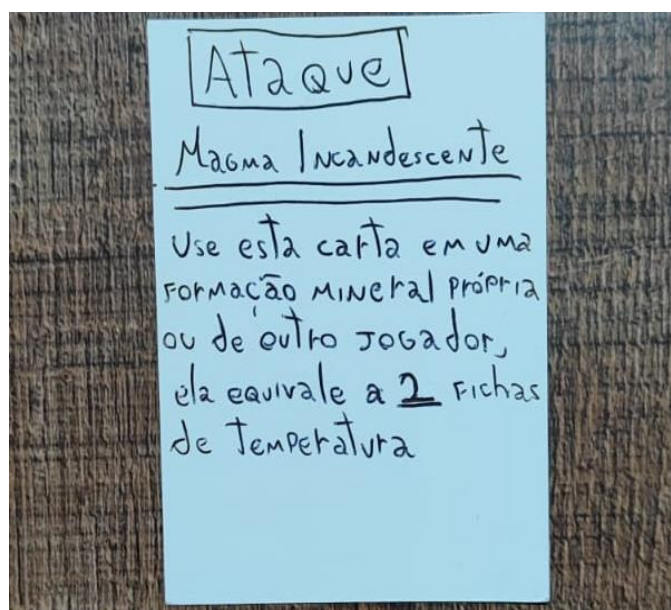 Ataque
Magma Incandescente
Use esta carta em uma
formação mineral própria
ou de outro jogador,
ela equivale a 2 fichas
de temperatura